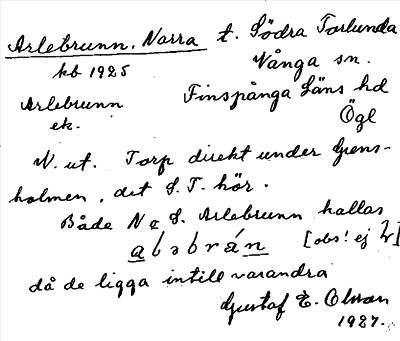 Arlebrunn, Norra t. Södra Torlunda
kb 1925 Vånga sn.
Arlebrunn Finspånga Läns hd
ek. Ögl
N. ut. Torp direkt under Grens-
holmen, det S. T. hör.
Både N & S. Arlebrunn kallas
abəbrán [obs! ej
då de ligga intill varandra
Gustaf E. Olsson
1927.